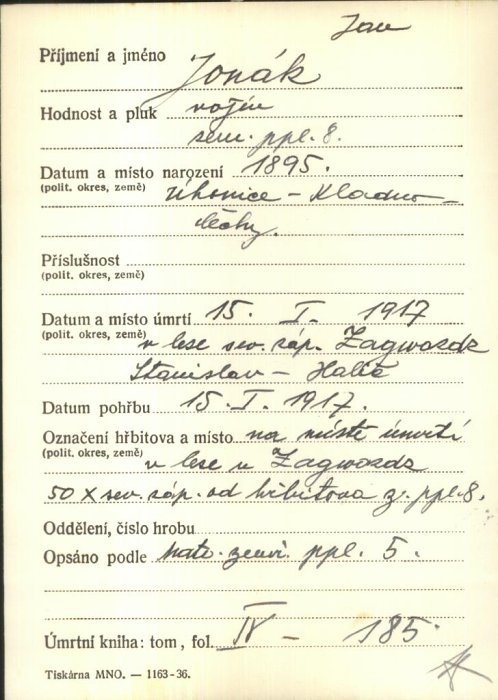 Jan
Příjmení a jméno Jonák
Hodnost a pluk vojín
zem. ppl. 8.
Datum a místo narození 1895.
(polit. okres, země) Úhonice - Kladno -
Čechy.
Příslušnost
(polit. okres, země)
Datum a místo úmrtí 15. I. 1917
(polit. okres, země) v lese sev. záp. Zagwozdz
Stanislav - Halič
Datum pohřbu 15. I. 1917.
Označení hřbitova a místo na místě úmrtí
(polit. okres, země) v lese u Zagwozdz
50 X sev. záp. od hřbitova z. ppl. 8.
Oddělení, číslo hrobu
Opsáno podle matr. ppl. 5.
Úmrtní kniha: tom, fol. IV - 185
Tiskárna MNO. — 1163-36.